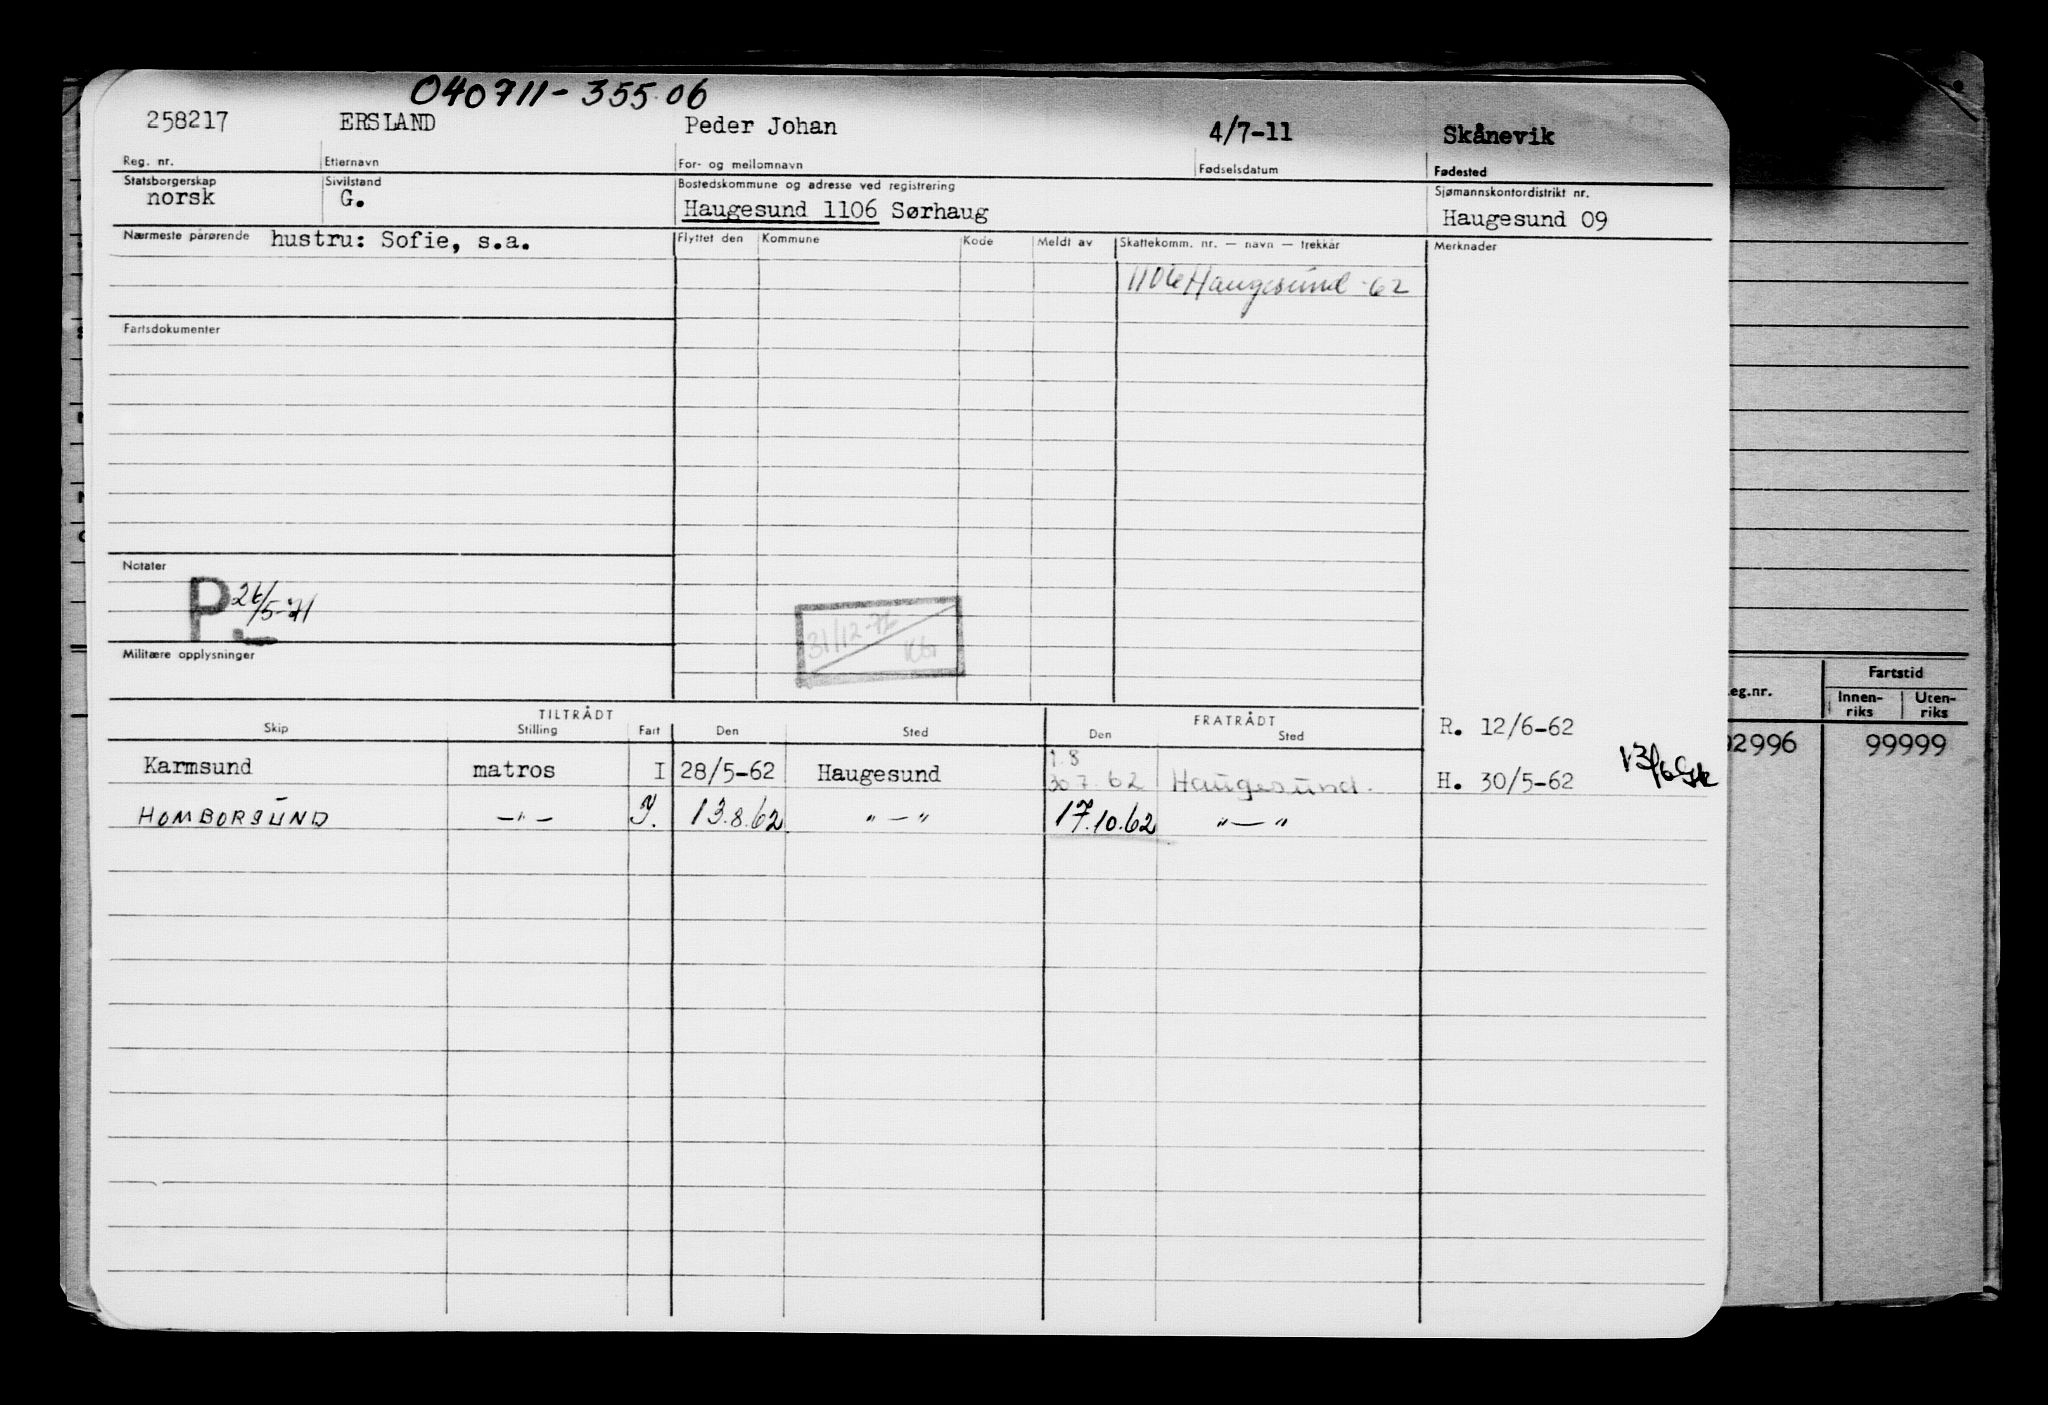 040711-355.06
258217 ERSLAND Peder Johan 4/7-11 Skånevik
Reg. nr. Etternavn For- og mellomnavn Fødselsdatum Fødested
Statsborgerskap Sivilstand Bostedskommune og adresse ved registrering Sjømannskontordistrikt nr.
norsk G. Haugesund 1106 Sørhaug Haugesund 09
Nærmeste pårørende hustru: Sofie, s.a. Flyttet den Kommune Kode Meldt av Skattekomm. nr. — navn — trekkår Merknader
1106 Haugesund -62
Fartsdokumenter
Notater
P 26/5-71
31/12-72
Militære opplysninger
TILTRÅDT FRATRÅDT
Skip Stilling Fart Den Sted Den Sted
R. 12/6-62
1.8
Karmsund matros I 28/5-62 Haugesund 30 7. 62 Haugesund.
H. 30/5-62
HOMBORSUND —"— I. 13.8.62 " — " 17.10.62 "—"
eg.nr. Fartstid
Innen-riks Uten-riks
02996 99999